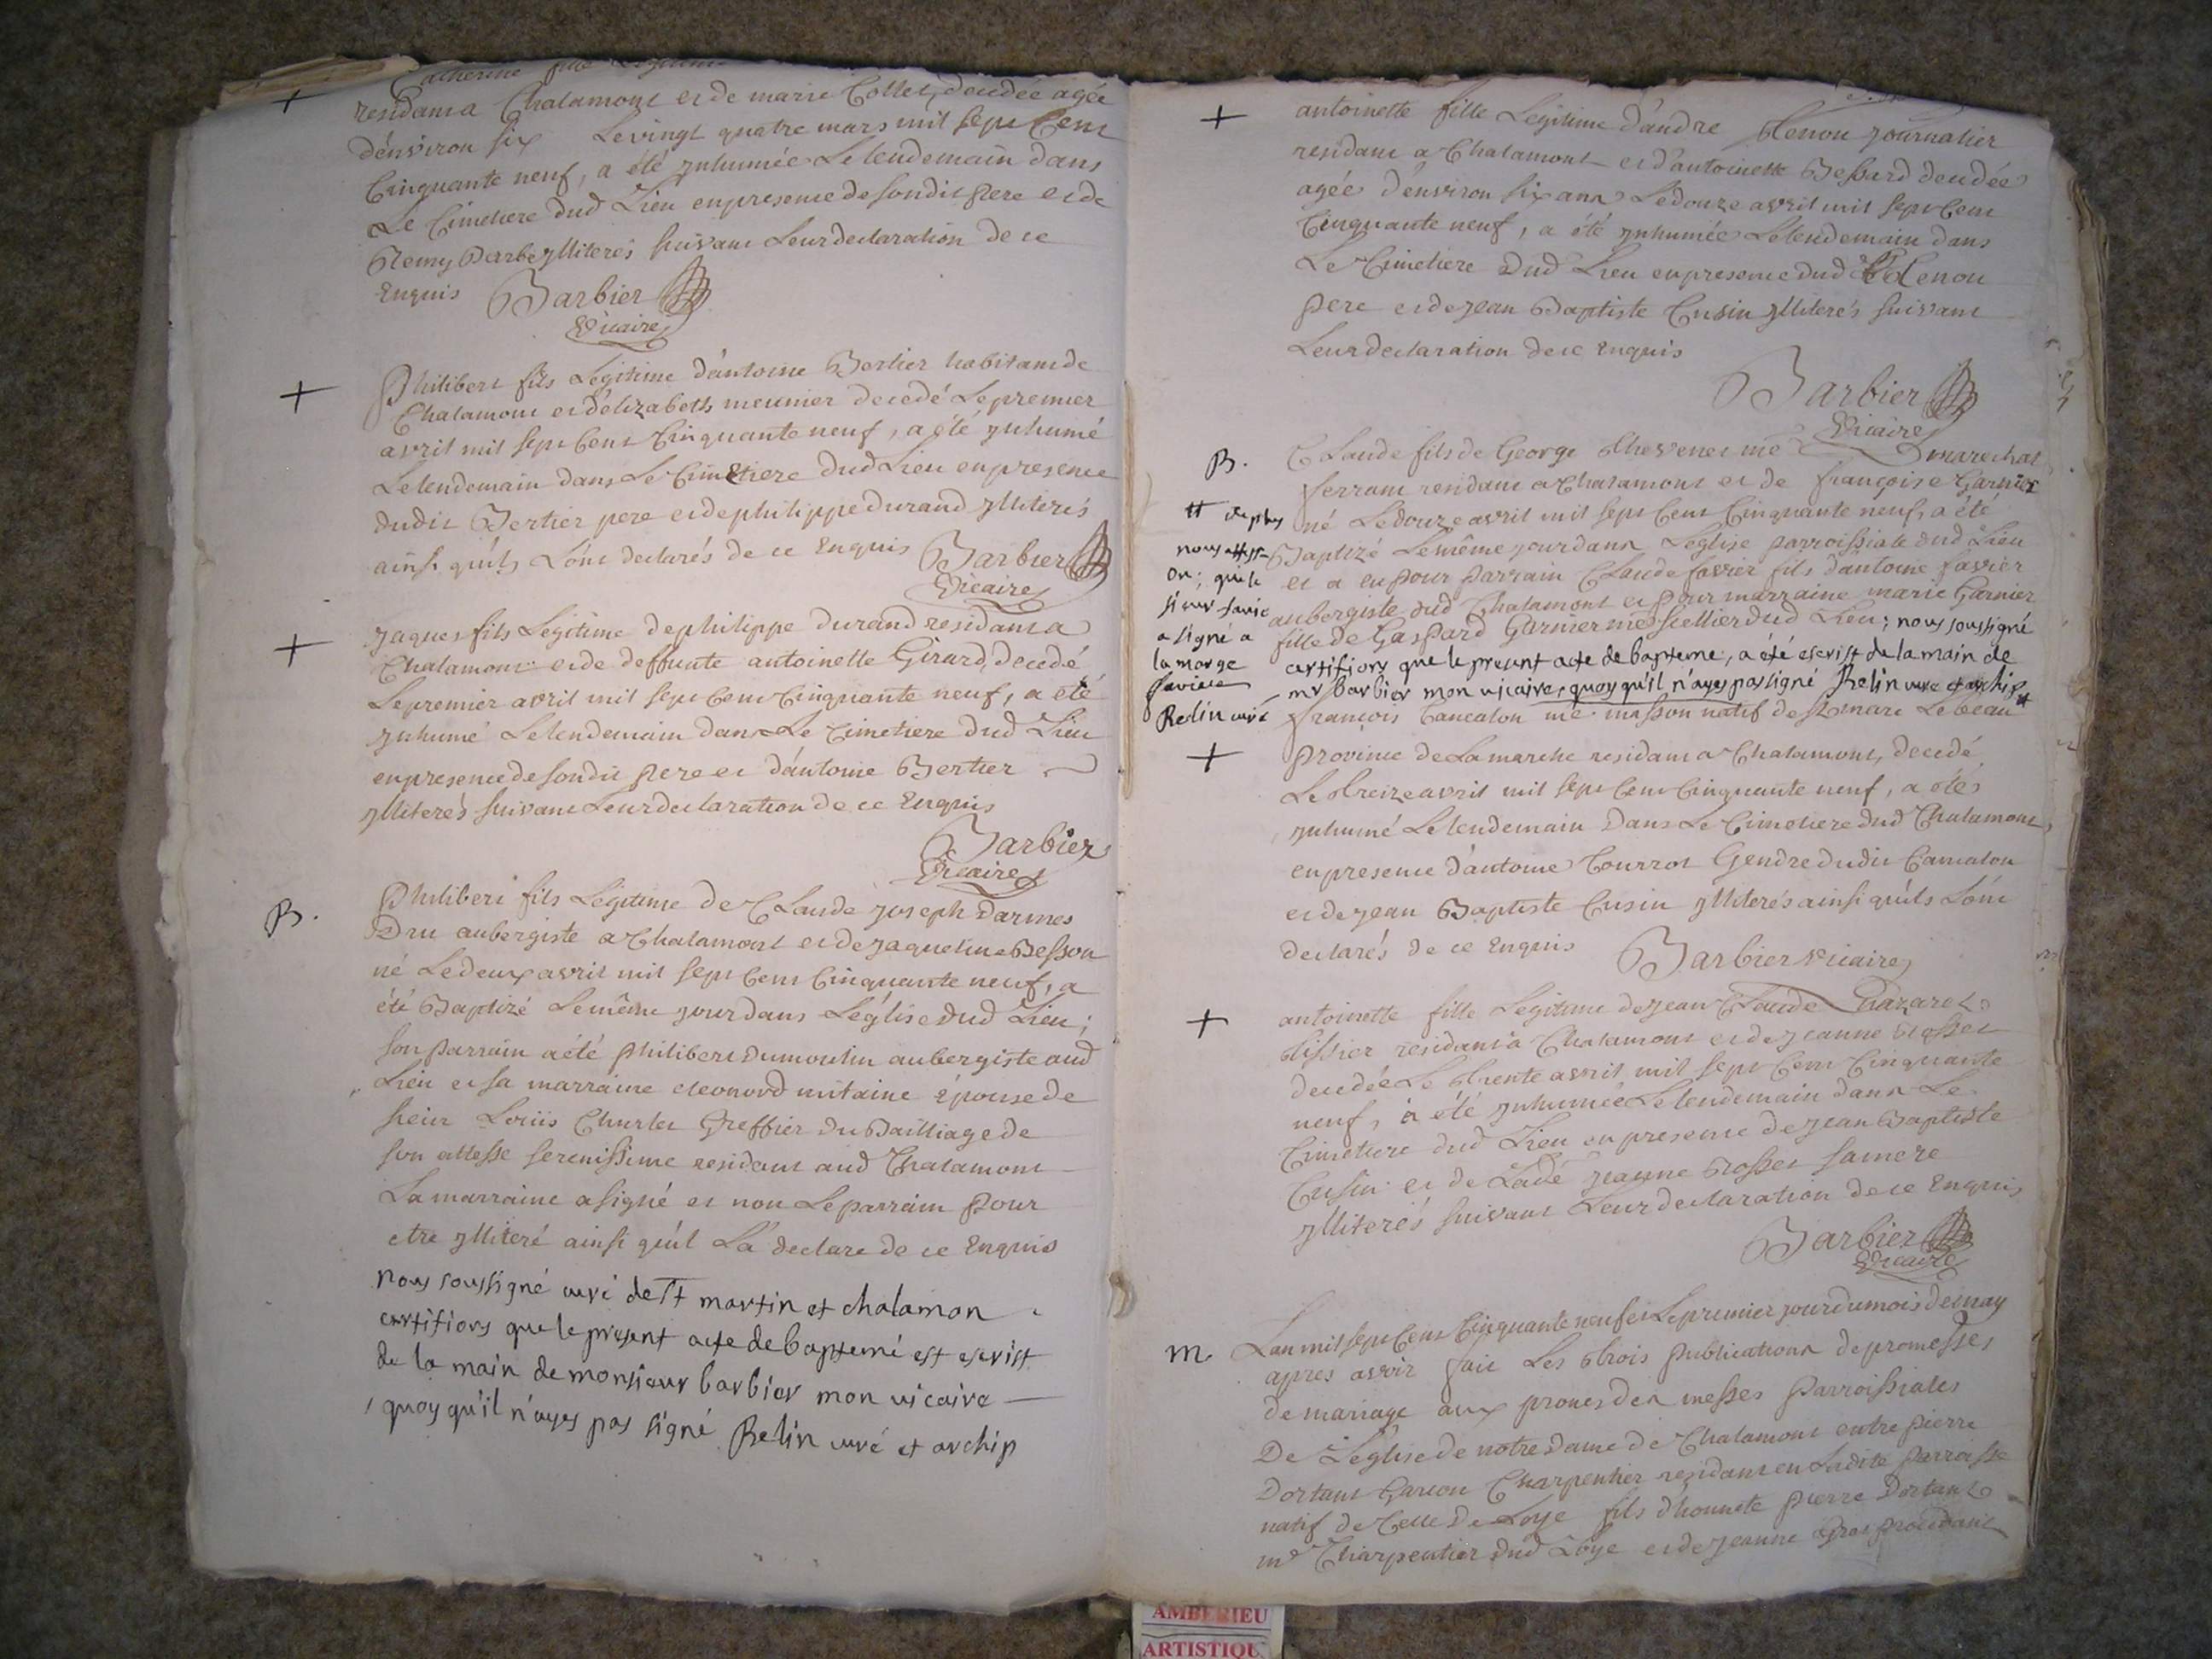 Catherine fille Legitime
+ residant a Chalamont et de marie Collet, decedée agée
d'environ six Le vingt quatre mars mil sept Cent
Cinquante neuf, a été ynhumée Le lendemain dans
Le Cimetiere dud Lieu en presence de son dit pere et de
Remy Barbe ylliterés suivant Leur declaration de ce
Enquis Barbier
Vicaire
+ Philibert fils Legitime d'antoine Bertier habitant de
Chalamont et d'elizabeth meunier decedé Le premier
avril mil sept Cent Cinquante neuf, a été ynhumé
Le lendemain dans Le Cimetiere dud Lieu en presence
dudit Bertier pere et de philippe durand ylliterés
ainsi qu'ils L'ont declarés de ce Enquis Barbier
Vicaire
+ Jaques fils Legitime de philippe durand residant a
Chalamont et de deffunte antoinette Girard, decedé
Le premier avril mil sept Cent Cinquante neuf, a été
ynhumé Le lendemain dans Le Cimetiere dud Lieu
en presence de son dit pere et d'antoine Bertier
ylliterés suivant Leur declaration de ce Enquis
Barbier
Vicaire
B. Philibert fils Legitime de Claude Joseph Darmes
Dru aubergiste a Chalamont et de Jaqueline Besson
né Le deux avril mil sept Cent Cinquante neuf, a
été Baptizé Le même jour dans L'église dud Lieu;
son parrain a été philibert Dumoulin aubergiste aud
Lieu et sa marraine eleonord mitaine épouse de
sieur Louis Churlet Greffier du Bailliage de
son altesse serenissime residant aud Chalamont
La marraine a signé et non Le parrain pour
etre ylliteré ainsi qu'il L'a declare de ce Enquis
nous soussigné curé de St martin et chalamon
certifions que le present acte de baptemé est escrist
de la main de monsieur barbier mon vicaire
quoy qu'il n'ayes pas signé Relin curé et archip
+ antoinette fille Legitime d'andre Thenon Journalier
residant a Chalamont et d'antoinette Bessard decedée
agée d'environ six ans Le douze avril mil sept Cent
Cinquante neuf, a été ynhumée Le lendemain dans
Le Cimetiere dud Lieu en presence dud Thenon
pere et de Jean Baptiste Cusin ylliterés suivant
Leur declaration de ce Enquis
Barbier
Vicaire
B. Claude fils de George Thevenet me marechal
ferrant residant a Chalamont et de françoise Garnier
né Le douze avril mil sept Cent Cinquante neuf, a été
Baptizé Le même jour dans L'eglise parroissiale dud Lieu
et a eu pour parrain Claude favier fils d'antoine favier
aubergiste dud Chalamont et pour marraine marie Garnier
fille de Gaspard Garnier me sellier dud Lieu; nous soussigné
certifions que le present acte de bapteme, a été escrist de la main de
mr barbier mon vicaire, quoy qu'il n'ayes pas signé Relin curé et archip
# de plus
nous
que le
sieur favie
a signé a
la marge
faviere
Relin curé
+ François Cancalon me masson natif de St marc Le beau
province de La marche residant a Chalamont, decedé
Le treize avril mil sept Cent Cinquante neuf, a étés
ynhumé Le lendemain dans Le Cimetiere dud Chalamont,
en presence d'antoine Courrot Gendre dudit Cancalon
et de Jean Baptiste Cusin ylliterés ainsi qu'ils L'ont
declarés de ce Enquis Barbier vicaire
+ antoinette fille Legitime de Jean Claude Chazaret
tissier residant a Chalamont et de Jeanne Rosset
decedée Le trente avril mil sept Cent Cinquante
neuf, a été ynhumée Le lendemain dans Le
Cimetiere dud Lieu en presence de Jean Baptiste
Cusin et de Ladé Jeanne Rosset sa mere
ylliterés suivant Leur declaration de ce Enquis
Barbier
Vicaire
m. L'an mil sept Cent Cinquante neuf et Le premier jour du mois de may
apres avoir fait Les trois publications de promesses
de mariage aux prones des messes parroissiales
De L'eglise de notre Dame de Chalamont entre pierre
Dortant Garcon Charpentier residant en Ladite parroisse
natif de Celle De Loye fils d'honnete pierre Dortant
me Charpentier dud Loye et de Jeanne Gros
AMBERIEU
ARTISTIQU